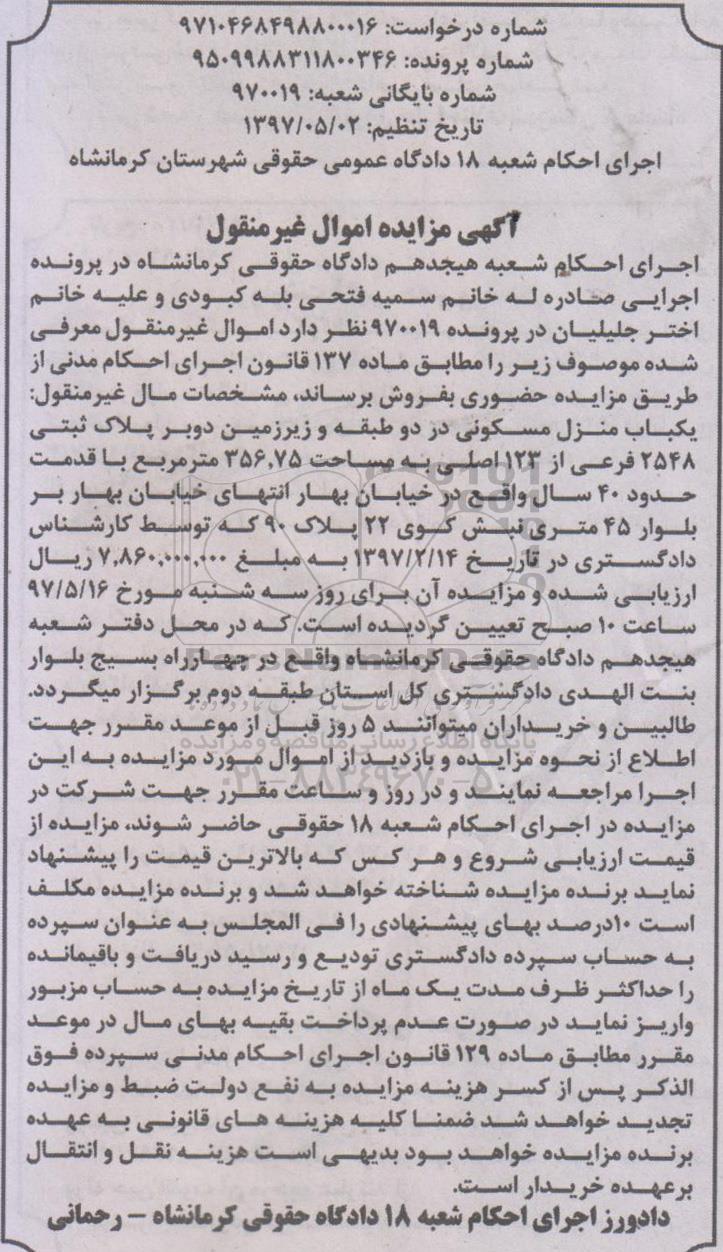 شماره درخواست: ۹۷۱۰۴۶۸۴۹۸۸۰۰۰۱۶
شماره پرونده: ۹۵۰۹۹۸۸۳۱۱۸۰۰۳۴۶
شماره بایگانی شعبه: ۹۷۰۰۱۹
تاریخ تنظیم: ۱۳۹۷/۰۵/۰۲
اجرای احکام شعبه ۱۸ دادگاه عمومی حقوقی شهرستان کرمانشاه
آگهی مزایده اموال غیرمنقول
اجرای احکام شعبه هیجدهم دادگاه حقوقی کرمانشاه در پرونده
اجرایی صادره له خانم سمیه فتحی بله کبودی و علیه خانم
اختر جلیلیان در پرونده ۹۷۰۰۱۹ نظر دارد اموال غیرمنقول معرفی
شده موصوف زیر را مطابق ماده ۱۳۷ قانون اجرای احکام مدنی از
طریق مزایده حضوری بفروش برساند، مشخصات مال غیرمنقول:
یکباب منزل مسکونی در دو طبقه و زیرزمین دوبر پلاک ثبتی
۲۵۴۸ فرعی از ۱۲۳ اصلی به مساحت ۳۵۶,۷۵ مترمربع با قدمت
حدود ۴۰ سال واقع در خیابان بهار انتهای خیابان بهار بر
بلوار ۴۵ متری نبش کوی ۲۲ پلاک ۹۰ که توسط کارشناس
دادگستری در تاریخ ۱۳۹۷/۲/۱۴ به مبلغ ۷,۸۶۰,۰۰۰,۰۰۰ ریال
ارزیابی شده و مزایده آن برای روز سه شنبه مورخ ۹۷/۵/۱۶
ساعت ۱۰ صبح تعیین گردیده است. که در محل دفتر شعبه
هیجدهم دادگاه حقوقی کرمانشاه واقع در چهارراه بسیج بلوار
بنت الهدی دادگستری کل استان طبقه دوم برگزار میگردد.
طالبین و خریداران میتوانند ۵ روز قبل از موعد مقرر جهت
اطلاع از نحوه مزایده و بازدید از اموال مورد مزایده به این
اجرا مراجعه نمایند و در روز و ساعت مقرر جهت شرکت در
مزایده در اجرای احکام شعبه ۱۸ حقوقی حاضر شوند، مزایده از
قیمت ارزیابی شروع و هر کس که بالاترین قیمت را پیشنهاد
نماید برنده مزایده شناخته خواهد شد و برنده مزایده مکلف
است ۱۰درصد بهای پیشنهادی را فی المجلس به عنوان سپرده
به حساب سپرده دادگستری تودیع و رسید دریافت و باقیمانده
را حداکثر ظرف مدت یک ماه از تاریخ مزایده به حساب مزبور
واریز نماید در صورت عدم پرداخت بقیه بهای مال در موعد
مقرر مطابق ماده ۱۲۹ قانون اجرای احکام مدنی سپرده فوق
الذکر پس از کسر هزینه مزایده به نفع دولت ضبط و مزایده
تجدید خواهد شد ضمنا کلیه هزینه های قانونی به عهده
برنده مزایده خواهد بود بدیهی است هزینه نقل و انتقال
برعهده خریدار است.
دادورز اجرای احکام شعبه ۱۸ دادگاه حقوقی کرمانشاه – رحمانی
ParsNamadData
پایگاه اطلاع رسانی مناقصه و مزایده
۰۲۱-۸۸۳۴۹۶۷۰-۵